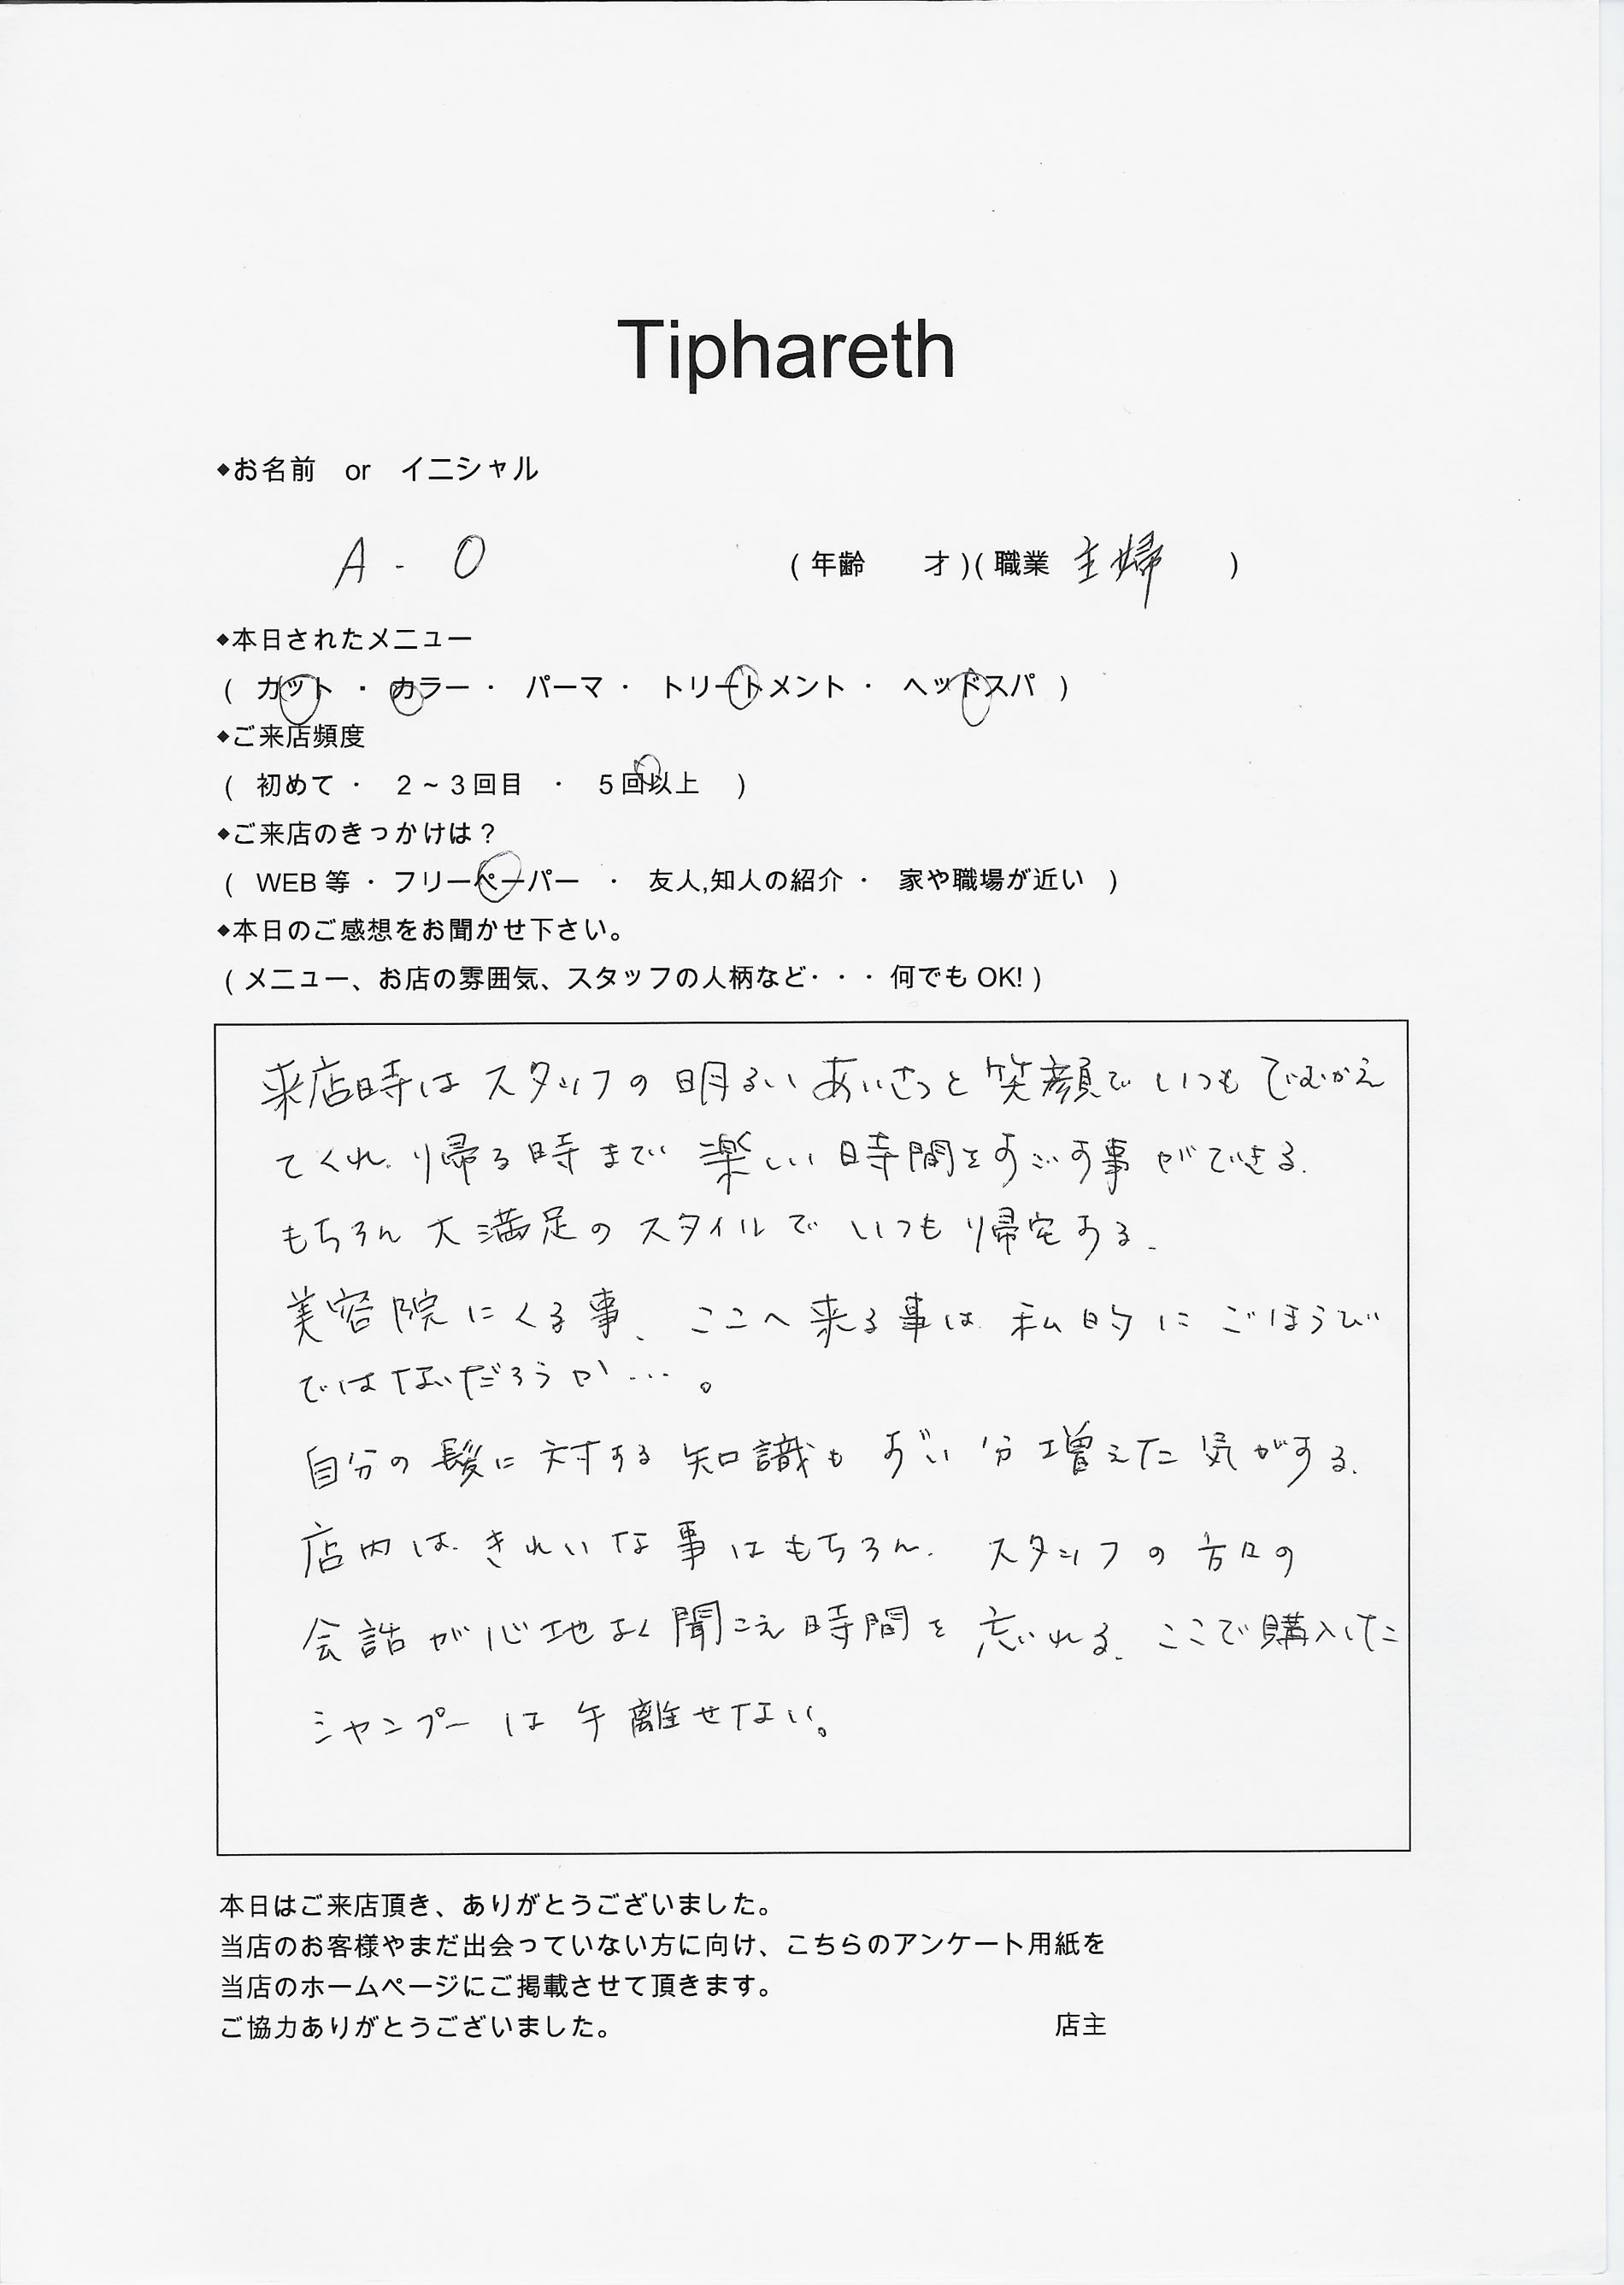 Tiphareth
◆お名前 or イニシャル
A - O (年齢 才)(職業 主婦 )
◆本日されたメニュー
( カット ・ カラー ・ パーマ ・ トリートメント ・ ヘッドスパ )
◆ご来店頻度
( 初めて ・ 2~3回目 ・ 5回以上 )
◆ご来店のきっかけは?
( WEB等 ・ フリーペーパー ・ 友人,知人の紹介 ・ 家や職場が近い )
◆本日のご感想をお聞かせ下さい。
(メニュー、お店の雰囲気、スタッフの人柄など・・・何でもOK!)
来店時はスタッフの明るいあいさつと笑顔でいつもでむかえ
てくれ、帰る時まで楽しい時間をすごす事ができる.
もちろん大満足のスタイルでいつも帰宅する.
美容院にくる事、ここへ来る事は私的にごほうび
ではないだろうか…。
自分の髪に対する知識もずい分増えた気がする.
店内はきれいな事はもちろん.スタッフの方々の
会話が心地よく聞こえ時間を忘いれる.ここで購入した
シャンプーは手離せない。
本日はご来店頂き、ありがとうございました。
当店のお客様やまだ出会っていない方に向け、こちらのアンケート用紙を
当店のホームページにご掲載させて頂きます。
ご協力ありがとうございました。 店主